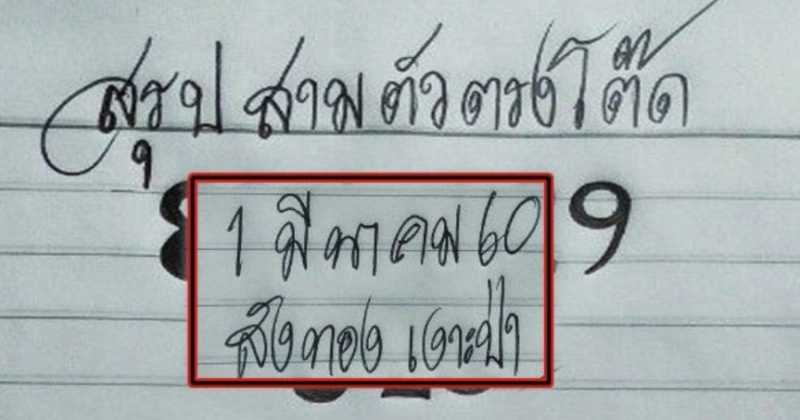 สรุป สามตัวตรงโต๊ด
9
1 มีนาคม 60
สังทอง เงาะป่า